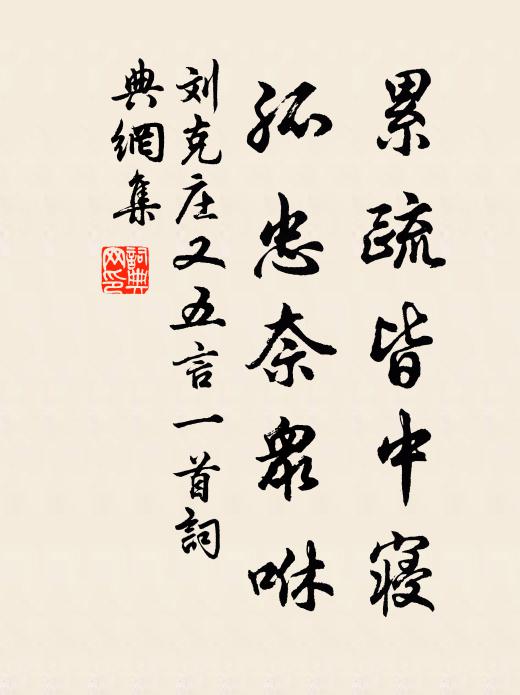 累疏皆中寝
孤忠奈衆咻
刘克庄又五言一首詞
典網集
詞典
网印